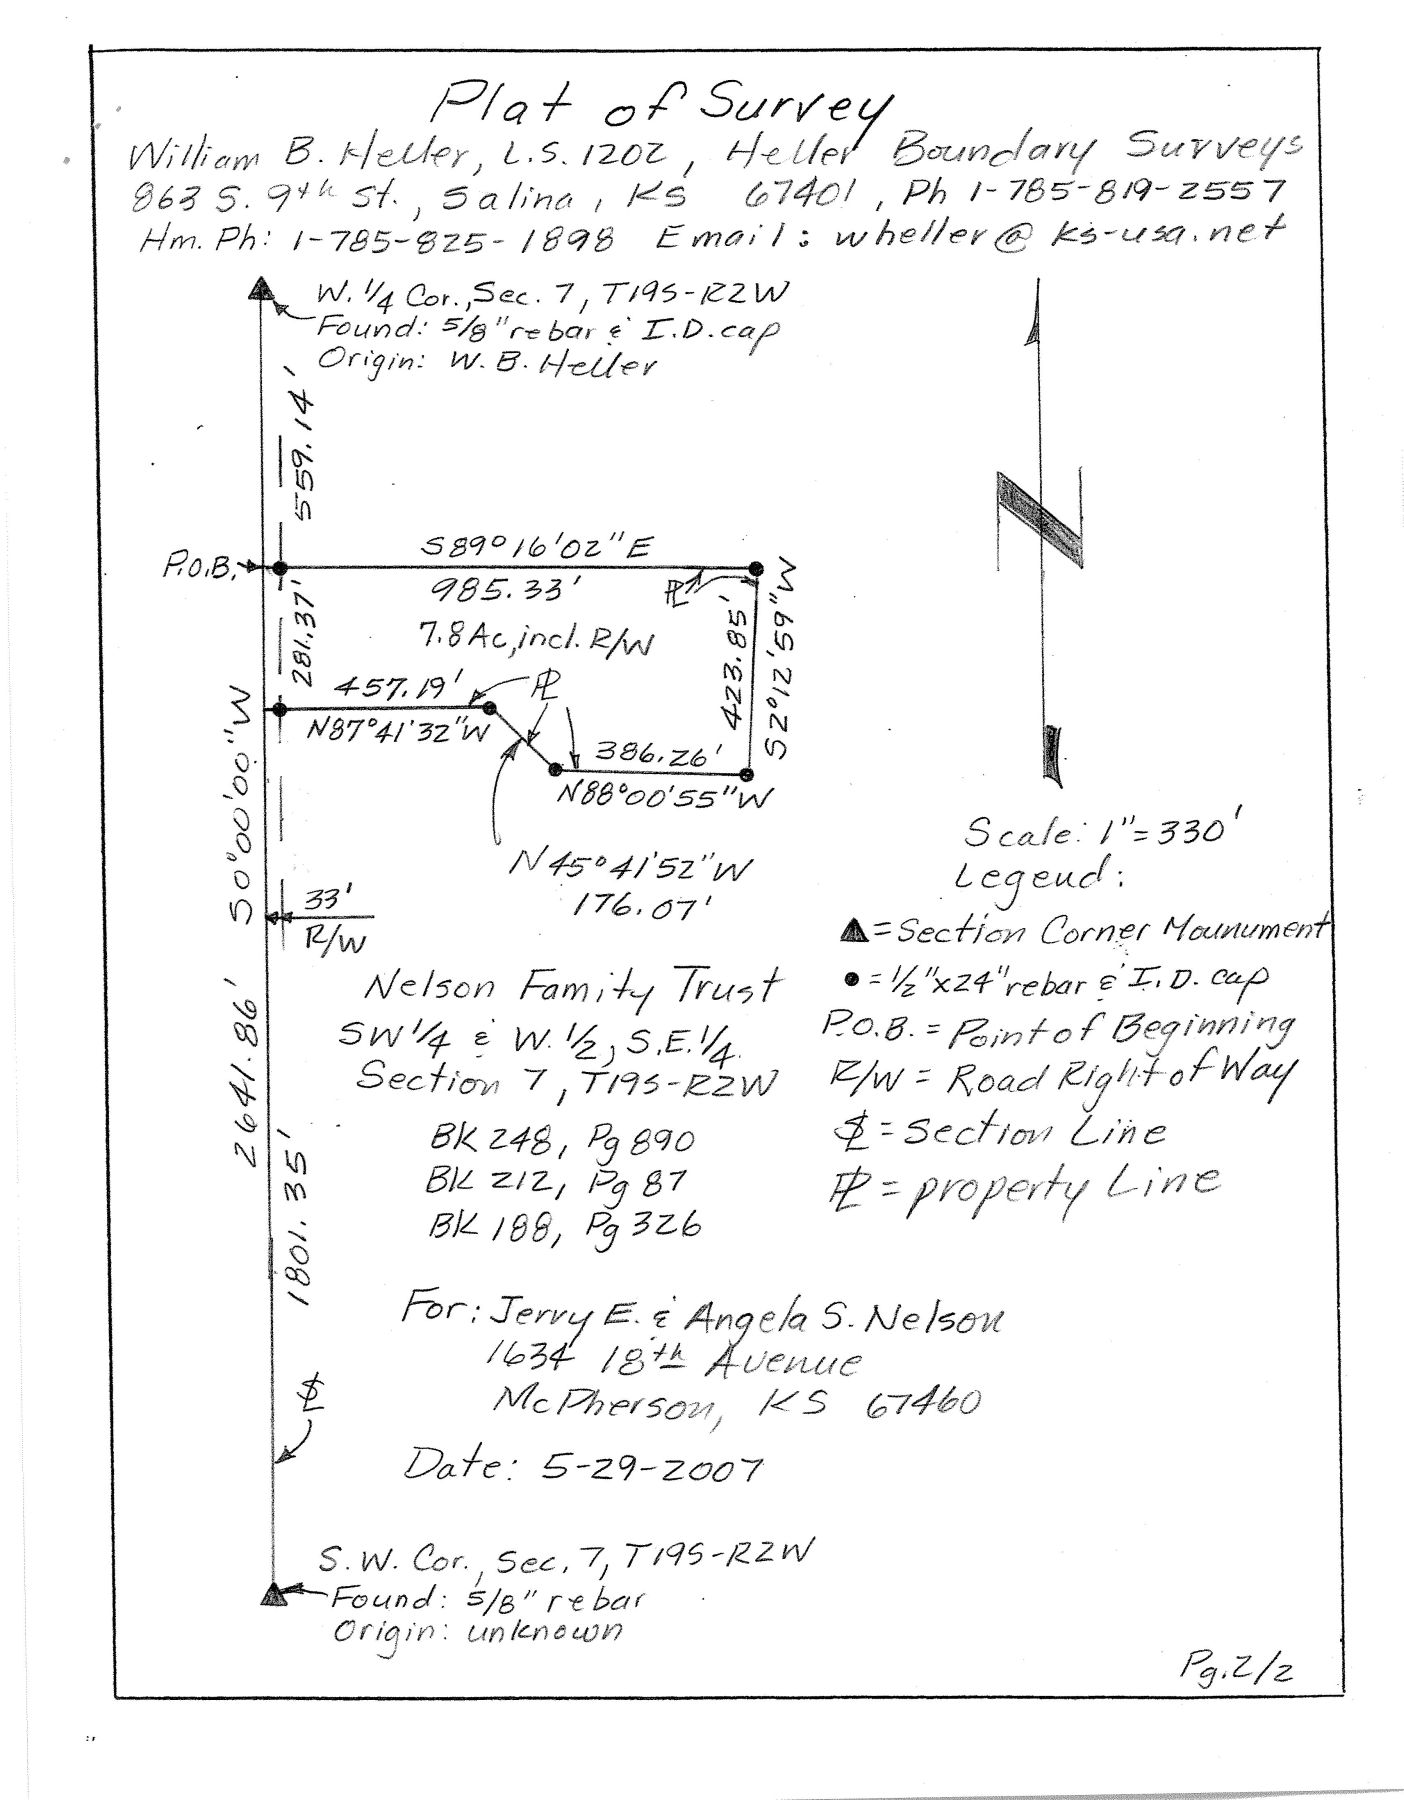 Plat of Survey
William B. Heller, L.S. 1202, Heller Boundary Surveys
863 S. 9th St., Salina, KS 67401, Ph 1-785-819-2557
Hm. Ph: 1-785-825-1898 Email: wheller@ks-usa.net
W. 1/4 Cor., Sec. 7, T19S-R2W
Found: 5/8" rebar & I.D. cap
Origin: W. B. Heller
559.14'
P.O.B.
S89°16'02"E
985.33'
PL
7.8 Ac, incl. R/W
281.37'
423.85'
S2°12'59"W
457.19'
PL
N87°41'32"W
386.26'
N88°00'55"W
N45°41'52"W
176.07'
S0°00'00"W
2641.86'
33'
R/W
1801.35'
Scale: 1"=330'
Legend:
▲=Section Corner Mounument
●=1/2"x24" rebar & I.D. cap
P.O.B. = Point of Beginning
R/W = Road Right of Way
SL = Section Line
PL = property Line
Nelson Family Trust
SW 1/4 & W. 1/2, S.E. 1/4
Section 7, T19S-R2W
BK 248, Pg 890
BK 212, Pg 87
BK 188, Pg 326
For: Jerry E. & Angela S. Nelson
1634 18th Avenue
McPherson, KS 67460
SL
Date: 5-29-2007
S.W. Cor., Sec. 7, T19S-R2W
Found: 5/8" rebar
Origin: unknown
Pg. 2/2